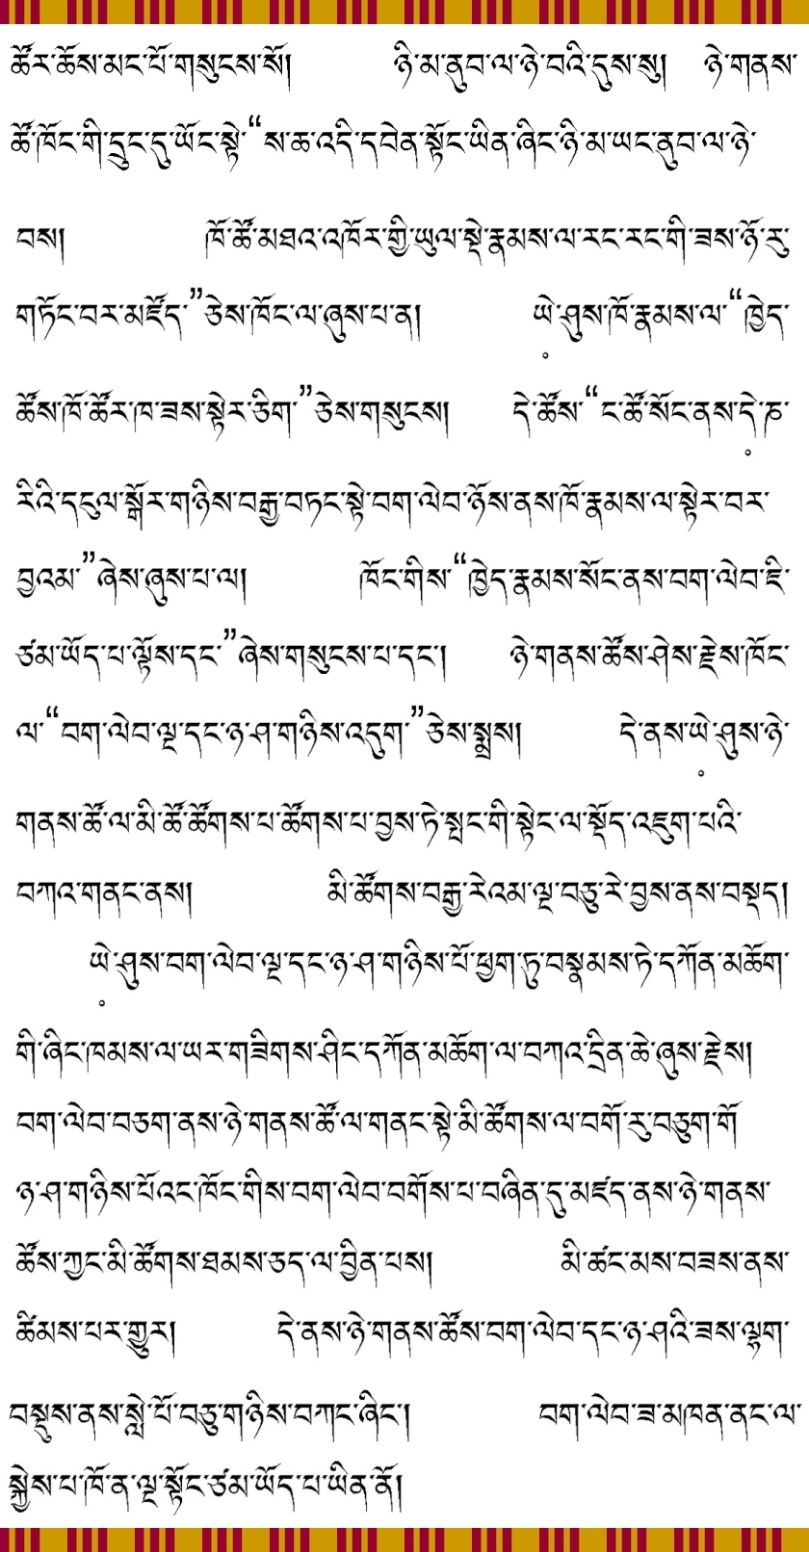 ཚོར་ཆོས་མང་པོ་གསུངས་སོ། ཉི་མ་ནུབ་ལ་ཉེ་བའི་དུས་སུ། ཉེ་གནས་
ཚོ་ཁོང་གི་དྲུང་དུ་ཡོང་སྟེ་“ས་ཆ་འདི་དབེན་སྟོང་ཡིན་ཞིང་ཉི་མ་ཡང་ནུབ་ལ་ཉེ་
བས། ཁོ་ཚོ་མཐའ་འཁོར་གྱི་ཡུལ་སྡེ་རྣམས་ལ་རང་རང་གི་ཟས་ཉོ་རུ་
གཏོང་བར་མཛོད་”ཅེས་ཁོང་ལ་ཞུས་པ་ན། ཡེ་ཤུས་ཁོ་རྣམས་ལ་“ཁྱེད་
ཚོས་ཁོ་ཚོར་ཁ་ཟས་སྟེར་ཅིག་”ཅེས་གསུངས། དེ་ཚོས་“ང་ཚོ་སོང་ནས་དེ་ན་
རིའི་དངུལ་སྒོར་གཉིས་བརྒྱ་བཏང་སྟེ་བག་ལེབ་ཉོས་ནས་ཁོ་རྣམས་ལ་སྟེར་བར་
བྱའམ་”ཞེས་ཞུས་པ་ལ། ཁོང་གིས་“ཁྱེད་རྣམས་སོང་ནས་བག་ལེབ་ཇི་
ཙམ་ཡོད་པ་ལྟོས་དང་”ཞེས་གསུངས་པ་དང་། ཉེ་གནས་ཚོས་ཤེས་རྗེས་ཁོང་
ལ་“བག་ལེབ་ལྔ་དང་ཉ་ཤ་གཉིས་འདུག་”ཅེས་སྨྲས། དེ་ནས་ཡེ་ཤུས་ཉེ་
གནས་ཚོ་ལ་མི་ཚོ་ཚོགས་པ་ཚོགས་པ་བྱས་ཏེ་སྤང་གི་སྟེང་ལ་སྡོད་འཇུག་པའི་
བཀའ་གནང་ནས། མི་ཚོགས་བརྒྱ་རེའམ་ལྔ་བཅུ་རེ་བྱས་ནས་བསྡད།
ཡེ་ཤུས་བག་ལེབ་ལྔ་དང་ཉ་ཤ་གཉིས་པོ་ཕྱག་ཏུ་བསྣམས་ཏེ་དཀོན་མཆོག་
གི་ཞིང་ཁམས་ལ་ཡར་གཟིགས་ཤིང་དཀོན་མཆོག་ལ་བཀའ་དྲིན་ཆེ་ཞུས་རྗེས།
བག་ལེབ་བཅག་ནས་ཉེ་གནས་ཚོ་ལ་གནང་སྟེ་མི་ཚོགས་ལ་བགོ་རུ་བཅུག་གོ
ཉ་ཤ་གཉིས་པོའང་ཁོང་གིས་བག་ལེབ་བགོས་པ་བཞིན་དུ་མཛད་ནས་ཉེ་གནས་
ཚོས་ཀྱང་མི་ཚོགས་ཐམས་ཅད་ལ་བྱིན་པས། མི་ཚང་མས་བཟས་ནས་
ཚིམས་པར་གྱུར། དེ་ནས་ཉེ་གནས་ཚོས་བག་ལེབ་དང་ཉ་ཤའི་ཟས་ལྷག་
བསྡུས་ནས་སླེ་པོ་བཅུ་གཉིས་བཀང་ཞིང་། བག་ལེབ་ཟ་མཁན་ནང་ལ་
སྐྱེས་པ་ཁོ་ན་ལྔ་སྟོང་ཙམ་ཡོད་པ་ཡིན་ནོ།